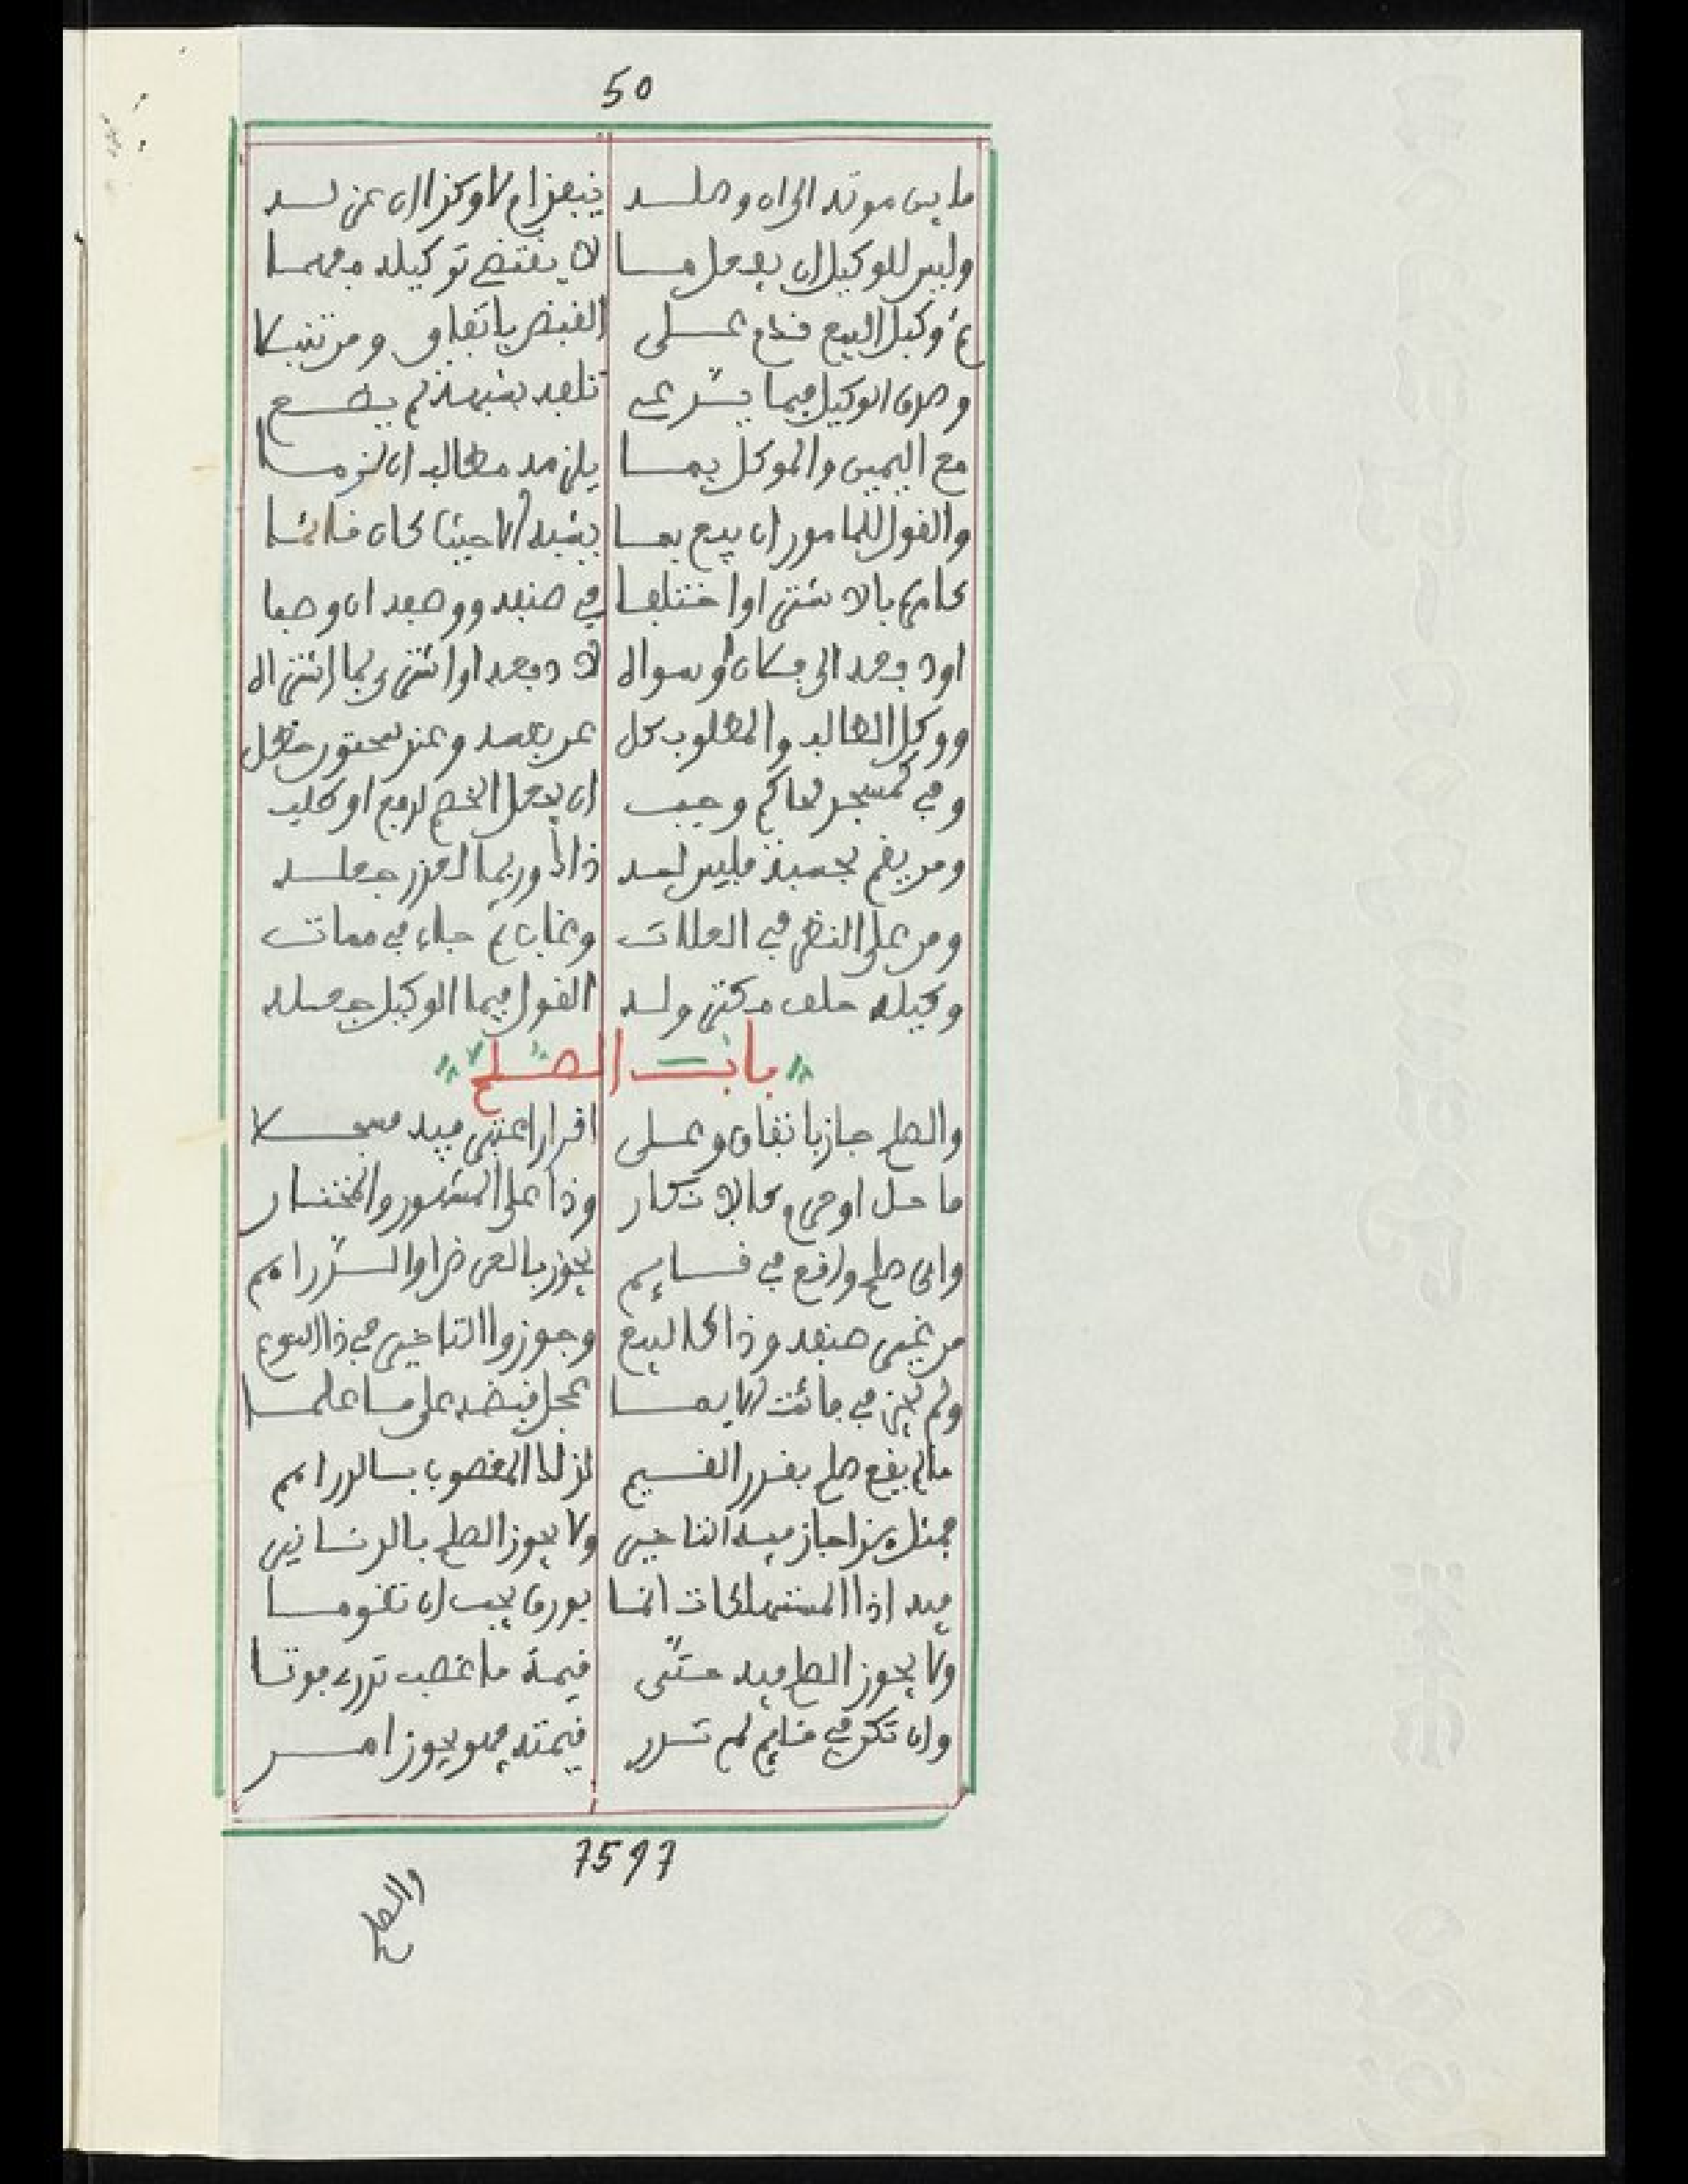 50
ما بين موته الى ان وصله ينفذ ام لا وكذا ان عزله
وليس للوكيل ان يفعل ما لا يقتضي توكيله مهما
وكيل البيع على القبض باتفاق ومن
وصدق الوكيل فيما يدعي تلفه بقبضه لم يضع
مع اليمين والموكل بما يلزمه مطالب ان لزما
والقول للمامور ان يبع بما يشبه الا حيث كان قائما
كامر بالاشترا او اختلفا في صنفه ووصفه ان وصفا
او دفعه الى مكان او سواه لا دفعه او اشترى بما اشتراه
ووكل الطالب والمطلوب كل عن نفسه وعند سحنون حظل
وفي كمسجد لحاكم وجب ان يجعل الخصم لرفع او طلب
ومن يقم بحسبة فليس له ذاك وربما لعذر جعله
ومن على النظر في الغلات وغاب ثم جاء في ممات
وكيله حلف مكتر وله القول فيما الوكيل جعله
باب الصلح
والصلح جاز باتفاق وعلى اقرار اعتبر فيه مسجلا
ما حل او حرم وكالانكار وذا على المشهور والمختار
واي صلح واقع في قائم يجوز بالعرض او الدراهم
من غير صنفه وذاك البيع وجوزوا التاخير في ذا النوع
ولم يجز في فائت الا بما عجل قبضه على ما علما
مالم يقع صلح بقدر القيم لذلك المغصوب بالدراهم
فمثل هذا جاز فيه التاخير ولا يجوز الصلح بالدنانير
فيه اذا المستهلكات انما بورق يجب ان تقوما
ولا يجوز الصلح فيه حتى قيمة ما غصب تدرى فوتا
وان تكن في قائم لم تدر قيمته فهو يجوز امر
7597
والصلح